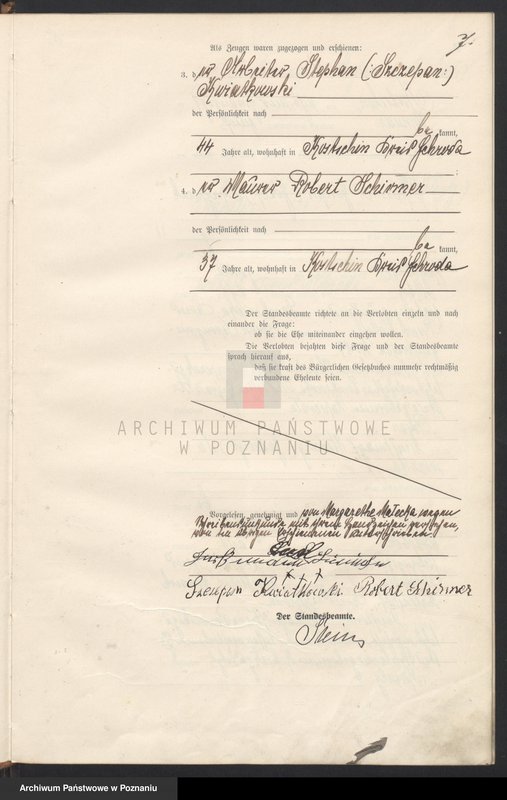 7.
Als Zeugen waren zugezogen und erschienen:
3. der Arbeiter Stephan (:Szczepan:)
Kwiatkowski
der Persönlichkeit nach
be kannt,
44 Jahre alt, wohnhaft in Kostschin Kreis Schroda
4. der Maurer Robert Schirmer
der Persönlichkeit nach
be kannt,
37 Jahre alt, wohnhaft in Kostschin Kreis Schroda
Der Standesbeamte richtete an die Verlobten einzeln und nach
einander die Frage:
ob sie die Ehe miteinander eingehen wollen.
Die Verlobten bejahten diese Frage und der Standesbeamte
sprach hierauf aus,
daß sie kraft des Bürgerlichen Gesetzbuches nunmehr rechtmäßig
verbundene Eheleute seien.
ARCHIWUM PAŃSTWOWE
W POZNANIU
Vorgelesen, genehmigt und von Margarethe Malecka wegen
Schreibensunkunde mit ihrem Handzeichen versehen,
von den übrigen Erschienenen unterschrieben.
+ + +
Szczepan Kwiatkowski Robert Schirmer
Der Standesbeamte.
Stein
Archiwum Państwowe w Poznaniu